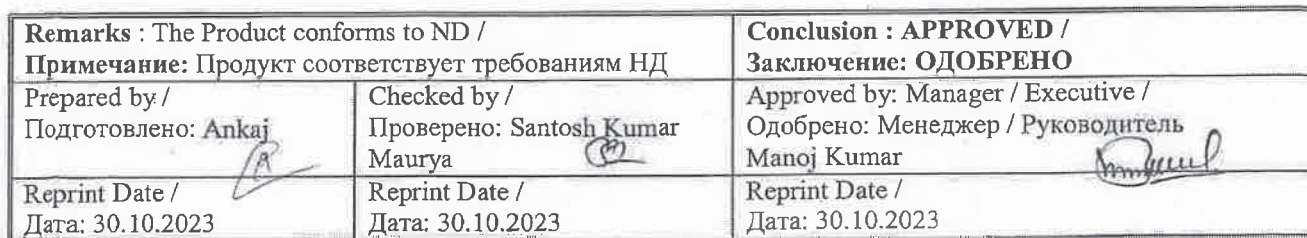 Remarks : The Product conforms to ND /
Примечание: Продукт соответствует требованиям НД
Conclusion : APPROVED /
Заключение: ОДОБРЕНО
Prepared by /
Подготовлено: Ankaj
Checked by /
Проверено: Santosh Kumar
Maurya
Approved by: Manager / Executive /
Одобрено: Менеджер / Руководитель
Manoj Kumar
Reprint Date /
Дата: 30.10.2023
Reprint Date /
Дата: 30.10.2023
Reprint Date /
Дата: 30.10.2023